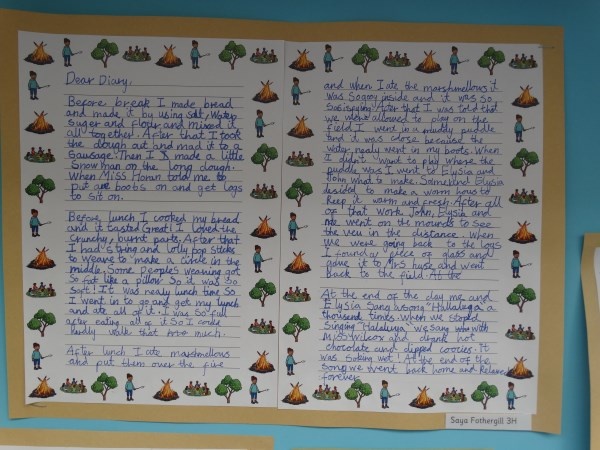 Dear Diary,
Before break I made bread
and made it by using Salt, Water
Suger and Flour and mixed it
all together. After that I took
the dough out and mad it to a
Sausage. Then I made a little
Snow man on the long dough.
When Miss Moran told me to
put are boots on and get logs
to sit on.
Before lunch I cooked my bread
and it tasted Great! I loved the
Crunchy, burnt parts. After that
I had String and lolly pop sticks
to Weave to make a circle in the
middle. Some peoples weaving got
So fat like a pillow So it was So
Soft! It was nealy lunch time So
I went in to go and got my lunch
and ate all of it. I was So full
after eating all of it So I
hardly walk that much.
After lunch I ate marshmellows
and put them over the fire
and when I ate the marshmellows it
was So gooy inside and it was So
Satisfying! After that I was told that
we were allowed to play on the
field. I went in a muddy puddle
and it was close because the
water nealy went in my boots. When
I didn't want to play where the
puddle was I went to Elysia and
John what to make. Some and Elysia
desided to make a worm hous to
Keep it warm and fresh. After all
of that work John, Elysia and
me went on the mounds to see
the view in the distance. When
we were going back to the logs
I found a piece of glass and
gave it to Mrs huse and went
back to the field. At the
At the end of the day me and
Elysia Sang Wsong "Hallaluga a
thousend times. When we stopped
Singing "Halaluya" we Sang with
Miss Wilcox and drank hot
chocolate and dipped cookies. It
was Soken wet! At the end of the
Song we went back home and Relaxed
forever.
Saya Fothergill 3H